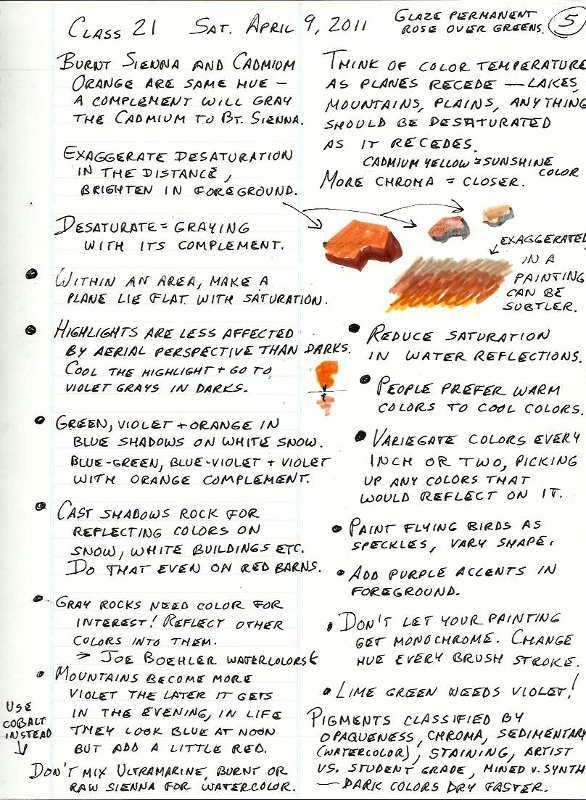 CLASS 21 SAT. APRIL 9, 2011
GLAZE PERMANENT
ROSE OVER GREENS.
5
BURNT SIENNA AND CADMIUM
ORANGE ARE SAME HUE —
A COMPLEMENT WILL GRAY
THE CADMIUM TO BT. SIENNA.
EXAGGERATE DESATURATION
IN THE DISTANCE,
BRIGHTEN IN FOREGROUND.
DESATURATE = GRAYING
WITH ITS COMPLEMENT.
• WITHIN AN AREA, MAKE A
PLANE LIE FLAT WITH SATURATION.
• HIGHLIGHTS ARE LESS AFFECTED
BY AERIAL PERSPECTIVE THAN DARKS.
COOL THE HIGHLIGHT + GO TO
VIOLET GRAYS IN DARKS.
• GREEN, VIOLET + ORANGE IN
BLUE SHADOWS ON WHITE SNOW.
BLUE-GREEN, BLUE-VIOLET + VIOLET
WITH ORANGE COMPLEMENT.
• CAST SHADOWS ROCK FOR
REFLECTING COLORS ON
SNOW, WHITE BUILDINGS ETC.
DO THAT EVEN ON RED BARNS.
• GRAY ROCKS NEED COLOR FOR
INTEREST! REFLECT OTHER
COLORS INTO THEM.
→ JOE BOEHLER WATERCOLORS
• MOUNTAINS BECOME MORE
VIOLET THE LATER IT GETS
IN THE EVENING, IN LIFE
THEY LOOK BLUE AT NOON
BUT ADD A LITTLE RED.
USE
COBALT
INSTEAD
DON'T MIX ULTRAMARINE, BURNT OR
RAW SIENNA FOR WATERCOLOR.
THINK OF COLOR TEMPERATURE
AS PLANES RECEDE — LAKES,
MOUNTAINS, PLAINS, ANYTHING
SHOULD BE DESATURATED
AS IT RECEDES.
CADMIUM YELLOW = SUNSHINE
COLOR
MORE CHROMA = CLOSER.
EXAGGERATED
IN A
PAINTING
CAN BE
SUBTLER.
• REDUCE SATURATION
IN WATER REFLECTIONS.
• PEOPLE PREFER WARM
COLORS TO COOL COLORS.
• VARIEGATE COLORS EVERY
INCH OR TWO, PICKING
UP ANY COLORS THAT
WOULD REFLECT ON IT.
• PAINT FLYING BIRDS AS
SPECKLES, VARY SHAPE.
• ADD PURPLE ACCENTS IN
FOREGROUND.
• DON'T LET YOUR PAINTING
GET MONOCHROME. CHANGE
HUE EVERY BRUSH STROKE.
• LIME GREEN WEEDS VIOLET!
PIGMENTS CLASSIFIED BY
OPAQUENESS, CHROMA, SEDIMENTARY
(WATERCOLOR), STAINING, ARTIST
VS. STUDENT GRADE, MINED V. SYNTH
— DARK COLORS DRY FASTER.